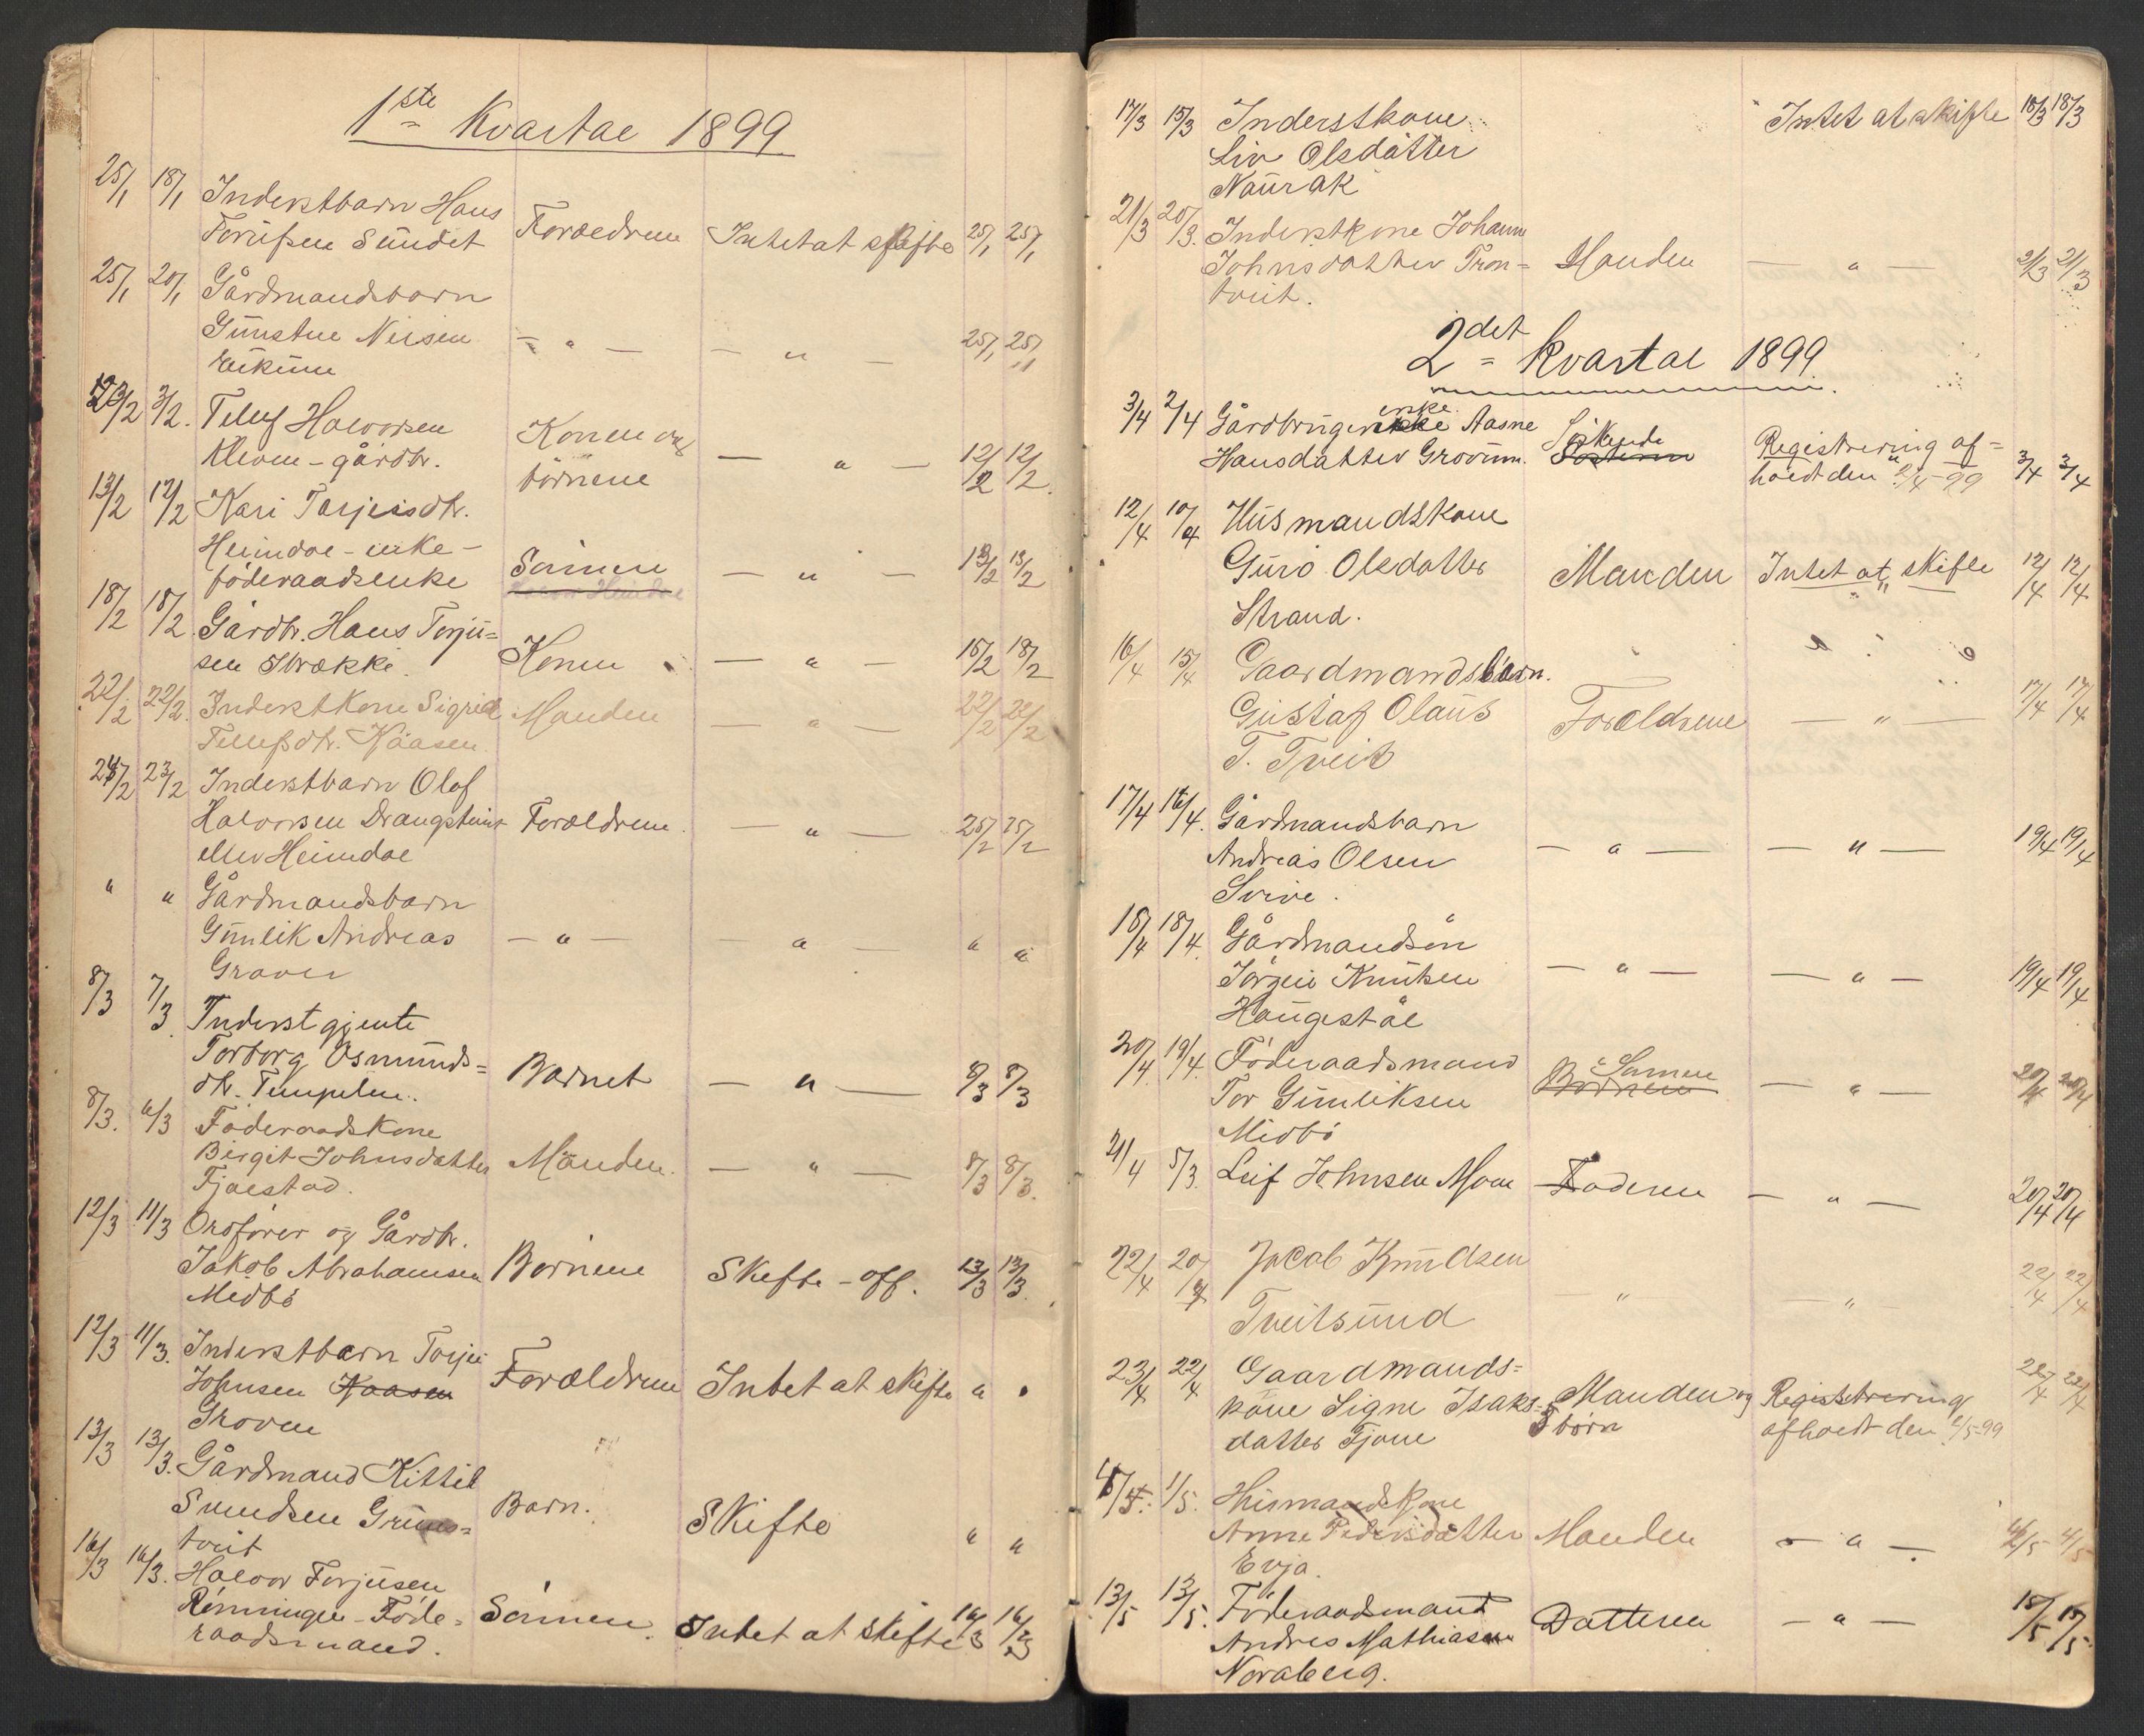 1ste Kvartal 1899
25/1 18/1 Inderstbarn Hans
Torjusen Sundet Forældrene Intet at skifte 25/1 25/1
25/1 20/1 Gårdmandsbarn
Gunstne Nilsen — " — — " — 25/1 25/1
Eikum
12/2 3/2. Tellef Halvorsen Konen og
Kleven - gårdbr. börnene — " — 12/2 12/2.
13/2 12/2 Kari Torjeisdtr.
Heimdal - enke -
föderaadsenke Sönnen — " — 13/2 13/2
18/2 18/2. Gårdbr. Hans Torju=
sen Strække. Konen — " — 18/2 18/2
22/2 22/2. Inderstkone Sigrid Manden — " — 22/2 22/2
Tellefsdtr. Kåasen
24/2 23/2 Inderstbarn Olaf
Halvorsen Drangsteint Forældrene — " — 25/2 25/2
eller Heimdal
" " Gårdmandsbarn
Gunlik Andreas — " — — " — " "
Graver
8/3 7/3. Inderstgjente
Torborg Osmunds=
dtr. Tempelen. Barnet — " — 8/3 8/3
8/3. 6/3 Föderaadskone
Birgit Johnsdatter Manden. — " — 8/3 8/3.
Fjalestad.
12/3 11/3 Ordförer og Gårdbr.
Jakob Abrahamsen Börnene Skifte - off. 13/3 13/3.
Midbö
12/3 11/3. Inderstbarn Torjei
Johnsen Kaasen Forældrene Intet at skifte " "
Groven
13/3 13/3. Gårdmand Kittil
Svendsen Gruns= Barn. Skifte " "
tveit
16/3 16/3. Halvor Torjusen
Rönningen - Föde= Sönnen. Intet at skifte 16/3 16/3
raadsmand.
17/3 15/3 Inderstkone Intet at skifte 18/3 18/3
Liv Olsdatter
Naurak
21/3 20/3. Inderstkone Johanne
Johnsdatter Tron= Manden — " — 21/3 21/3
tveit.
2det Kvartal 1899.
3/4 2/4 Gårdbrugerske Aasne Söskende Registrering af=
Hansdatter Grovum. holdt den 2/4-99 3/4 3/4
12/4 10/4 Husmandskone
Guro Olsdatter Manden Intet at skifte 12/4 12/4
Strand.
16/4 15/4 Gaardmandsbarn.
Gustaf Olaus Forældrene — " — 17/4 17/4
T. Tveit
17/4 16/4. Gårdmandsbarn
Andreas Olsen — " — — " — 19/4 19/4
Svive.
18/4 18/4. Gårdmandsön
Jörgen Knutsen — " — — " — 19/4 19/4
Haugestöl
20/4. 19/4. Föderaadsmand Sönnen
Tor Gunliksen Börnene — " — 20/4 20/4
Midbö
21/4 5/3. Leif Johnsen Moen Faderen — " — 20/4 20/4
22/4 20/4 Jacob Knudsen — " — — " — 22/4 22/4
Tveitsund
23/4 22/4 Gaardmands= 22/4 22/4
kone Signe Isaks= Manden og Registrering
datter Fjone 3 börn afholdt den 2/5-99
4/5. 1/5. Husmandskone
Anne Pedersdatter Manden — " — 4/5 4/5
Evja.
13/5 13/5. Föderaadsmand
Andres Mathiasen Datteren — " — 15/5 15/5.
Noraberg.